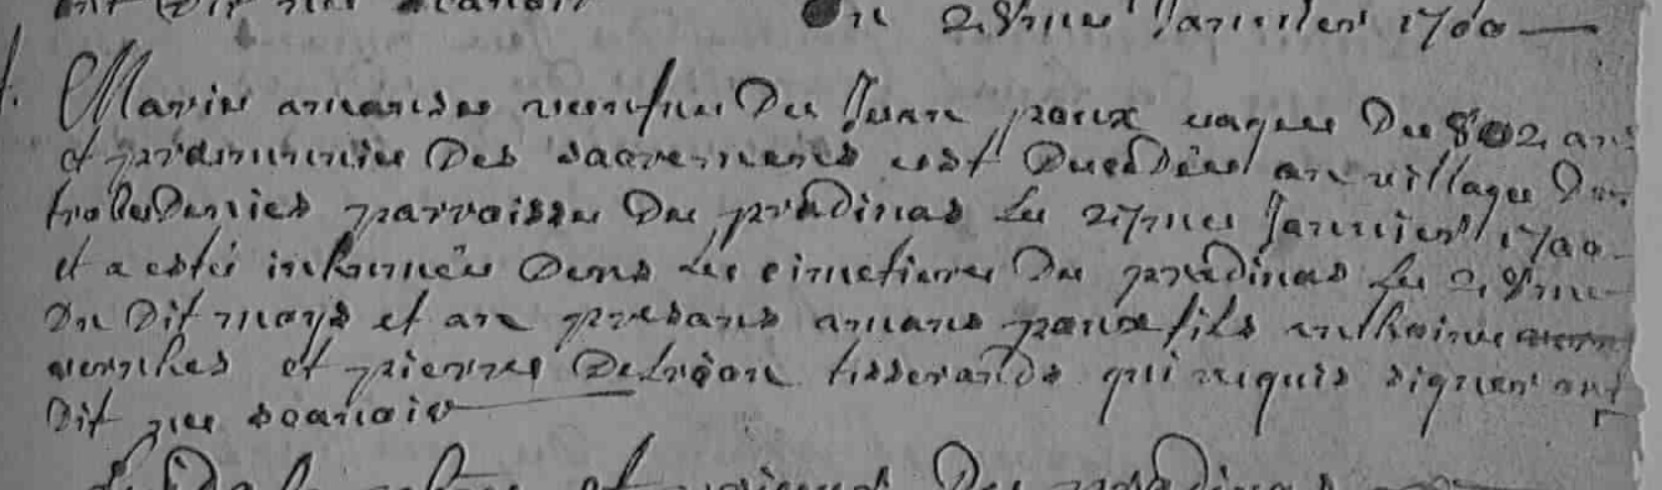 Du 28me Janvier 1700
Marie amansse veusve de Jean poux eagee de 802 ans
et premunnie des sacremens est decedee au village de
trebedernies parroisse de pradinas le 27me Janvier 1700
et a esté inhumée dens le cimetiere de pradinas le 28me
du dit moys et an presans amans poux fils anthoine
et pierre tisserands qui requis signer ont
dit ne scavoir
et de pradinas